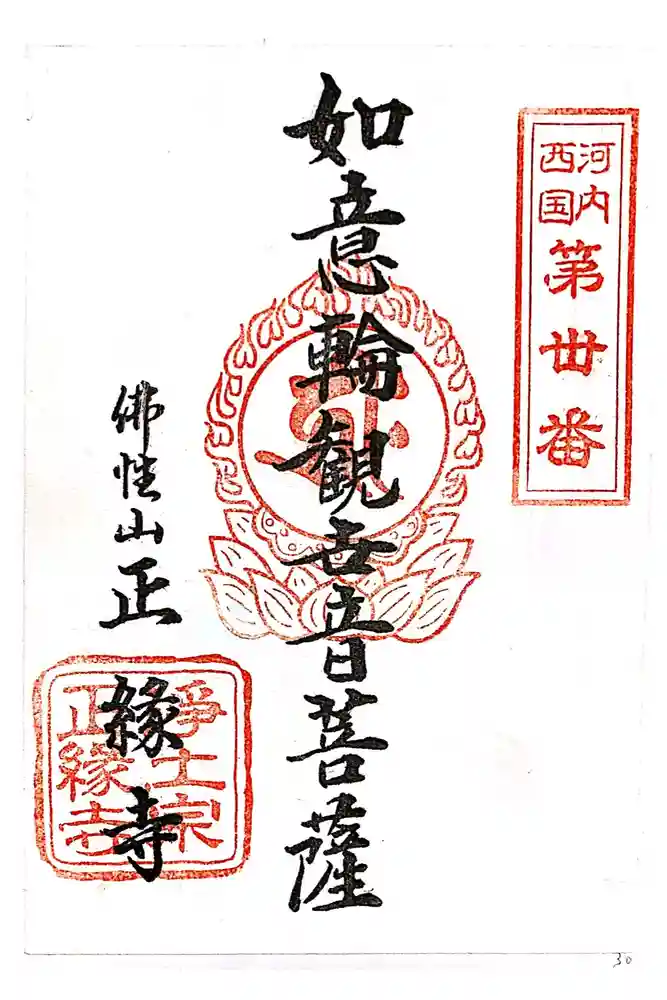 河内
西国
第丗番
如意輪観世音菩薩
佛性山正縁寺
浄土宗
正縁寺
30